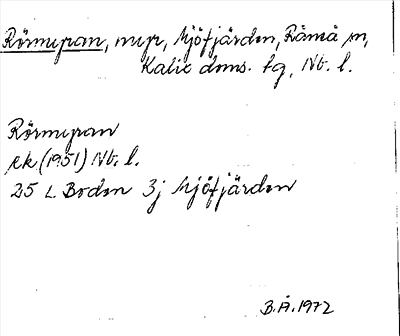 Rörmyran, myr, Mjöfjärden, Råneå sn,
Kalix doms. tg, Nb. l.
Rörmyran
ek (1951) Nb. l.
25 L Boden 3j Mjöfjärden
B.Å. 1972